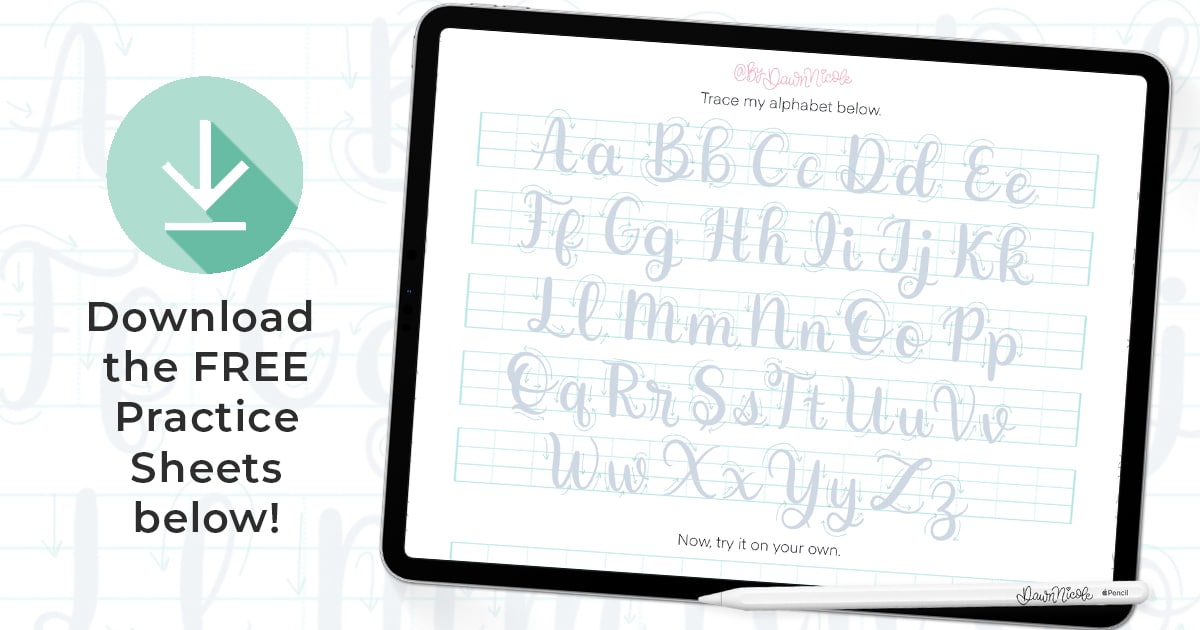 Download
the FREE
Practice
Sheets
below!
@ByDawnNicole
Trace my alphabet below.
Aa Bb Cc Dd Ee
Ff Gg Hh Ii Jj Kk
Ll Mm Nn Oo Pp
Qq Rr Ss Tt Uu Vv
Ww Xx Yy Zz
Now, try it on your own.
DawnNicole Pencil